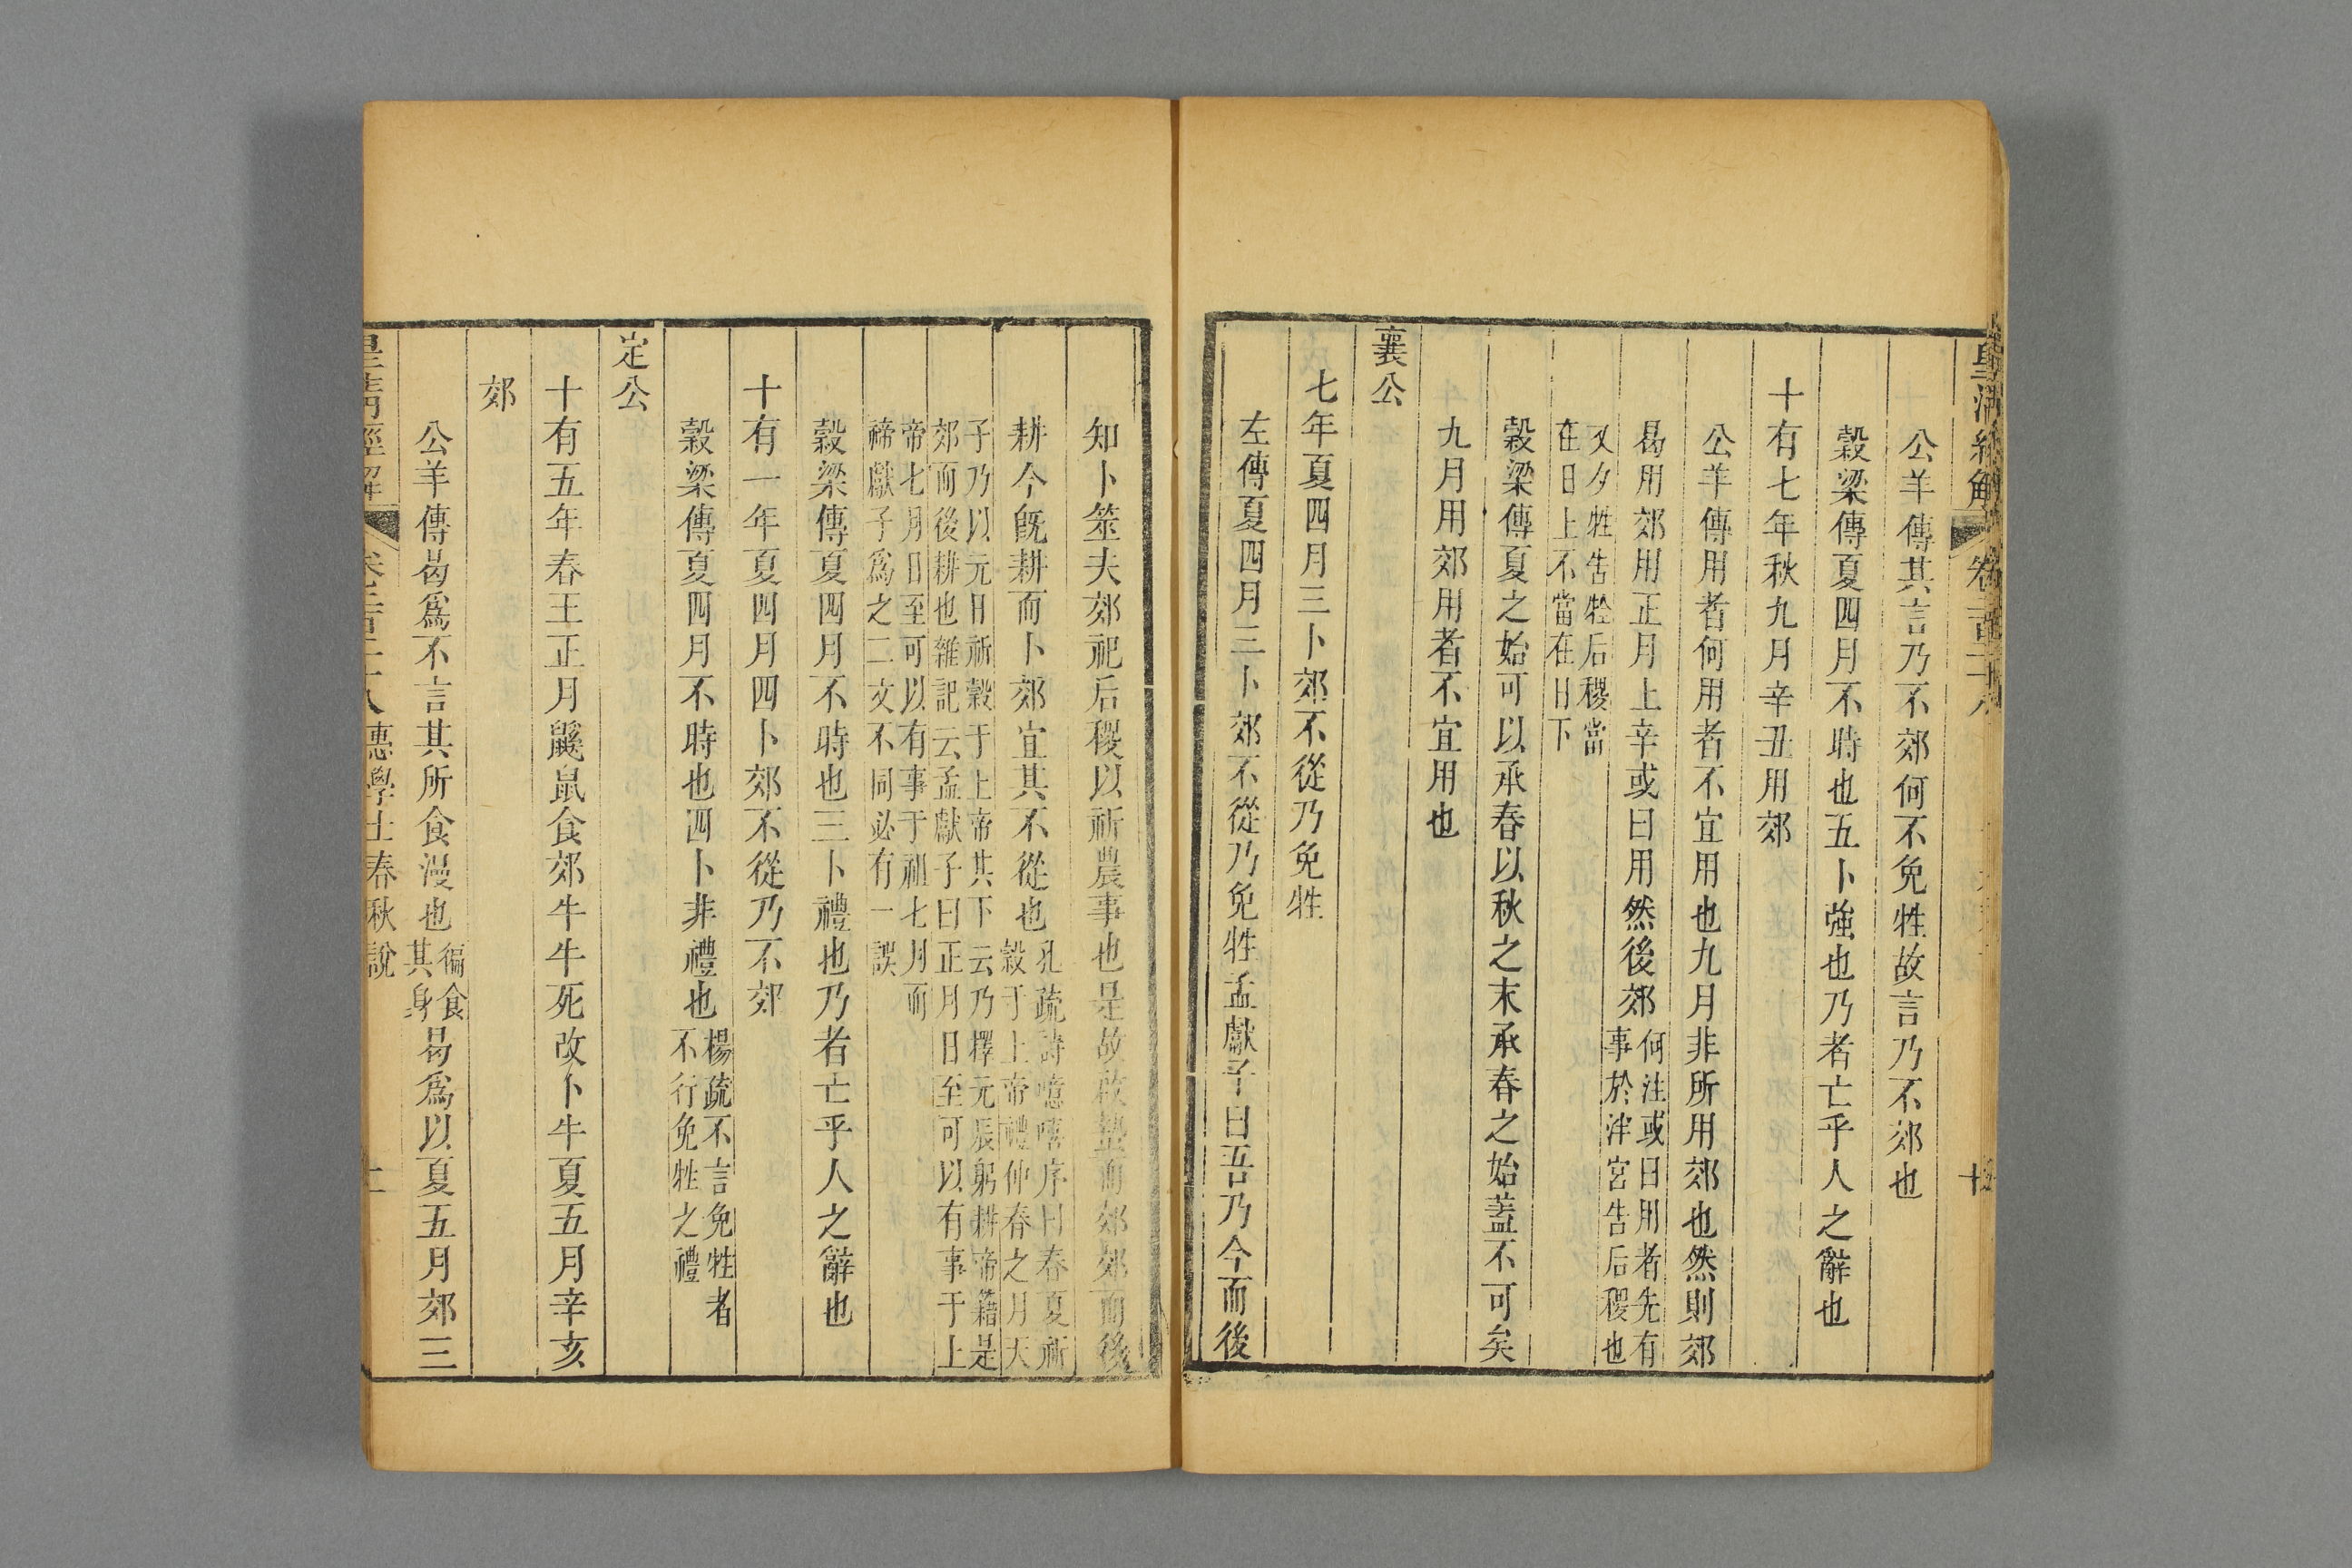 公羊傳其言乃不郊何不免牲故言乃不郊也
穀梁傳夏四月不時也五卜強也乃者亡乎人之辭也
十有七年秋九月辛丑用郊
公羊傳用者何用者不宜用也九月非所用郊也然則郊
曷用郊用正月上辛或曰用然後郊何注或曰用者先有
事於泮宮告后稷也
又夕牲告牷后稷當
在日上不當在日下
穀梁傳夏之始可以承春以秋之末承春之始蓋不可矣
九月用郊用者不宜用也
襄公
七年夏四月三卜郊不從乃免牲
左傳夏四月三卜郊不從乃免牲孟獻子曰吾乃今而後
知卜筮夫郊祀后稷以祈農事也是故啟蟄而郊郊而後
耕今旣耕而卜郊宜其不從也孔疏詩噫嘻序曰春夏祈
穀于上帝禮仲春之月天
子乃以元日祈穀于上帝其下云乃擇元辰躬耕帝籍是
郊而後耕也雜記云孟獻子曰正月日至可以有事于上
帝七月日至可以有事于祖七月而
禘獻子爲之二文不同必有一誤
穀梁傳夏四月不時也三卜禮也乃者亡乎人之辭也
十有一年夏四月四卜郊不從乃不郊
穀梁傳夏四月不時也四卜非禮也楊疏不言免牲者
不行免牲之禮
定公
十有五年春王正月鼷鼠食郊牛牛死改卜牛夏五月辛亥
郊
公羊傳曷爲不言其所食漫也徧食
其身曷爲以夏五月郊三
惠學士春秋說